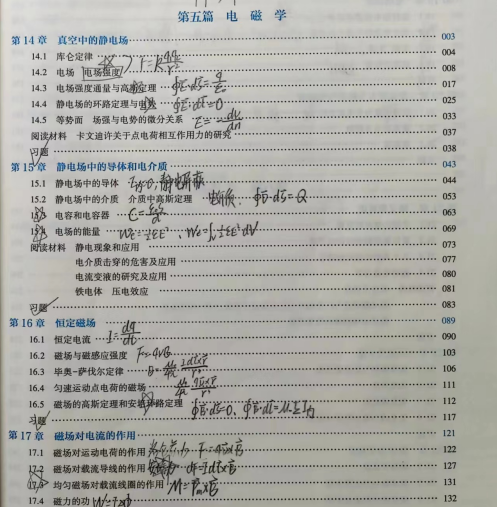 第五篇 电磁学
第14章 真空中的静电场 003
14.1 库仑定律 004
14.2 电场 电场强度 008
14.3 电场强度通量与高斯定理 ∮E·dS=q/ε 017
14.4 静电场的环路定理与电势 025
14.5 等势面 场强与电势的微分关系 E=-du/dn 033
阅读材料 卡文迪许关于点电荷相互作用力的研究 037
习题 038
第15章 静电场中的导体和电介质 043
15.1 静电场中的导体 044
15.2 静电场中的介质 介质中高斯定理 053
15.3 电容和电容器 063
15.4 电场的能量 069
阅读材料 静电现象和应用 073
电介质击穿的危害及应用 077
电流变液的研究及应用 080
铁电体 压电效应 081
习题 083
第16章 恒定磁场 089
16.1 恒定电流 I=dq/dt 090
16.2 磁场与磁感应强度 F=qvB 103
16.3 毕奥-萨伐尔定律 106
16.4 匀速运动点电荷的磁场 111
16.5 磁场的高斯定理和安培环路定理 112
习题 117
第17章 磁场对电流的作用 121
17.1 磁场对运动电荷的作用 122
17.2 磁场对载流导线的作用 127
17.3 均匀磁场对载流线圈的作用 131
17.4 磁力的功 132